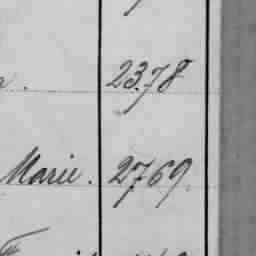 2378
Marie. 2769